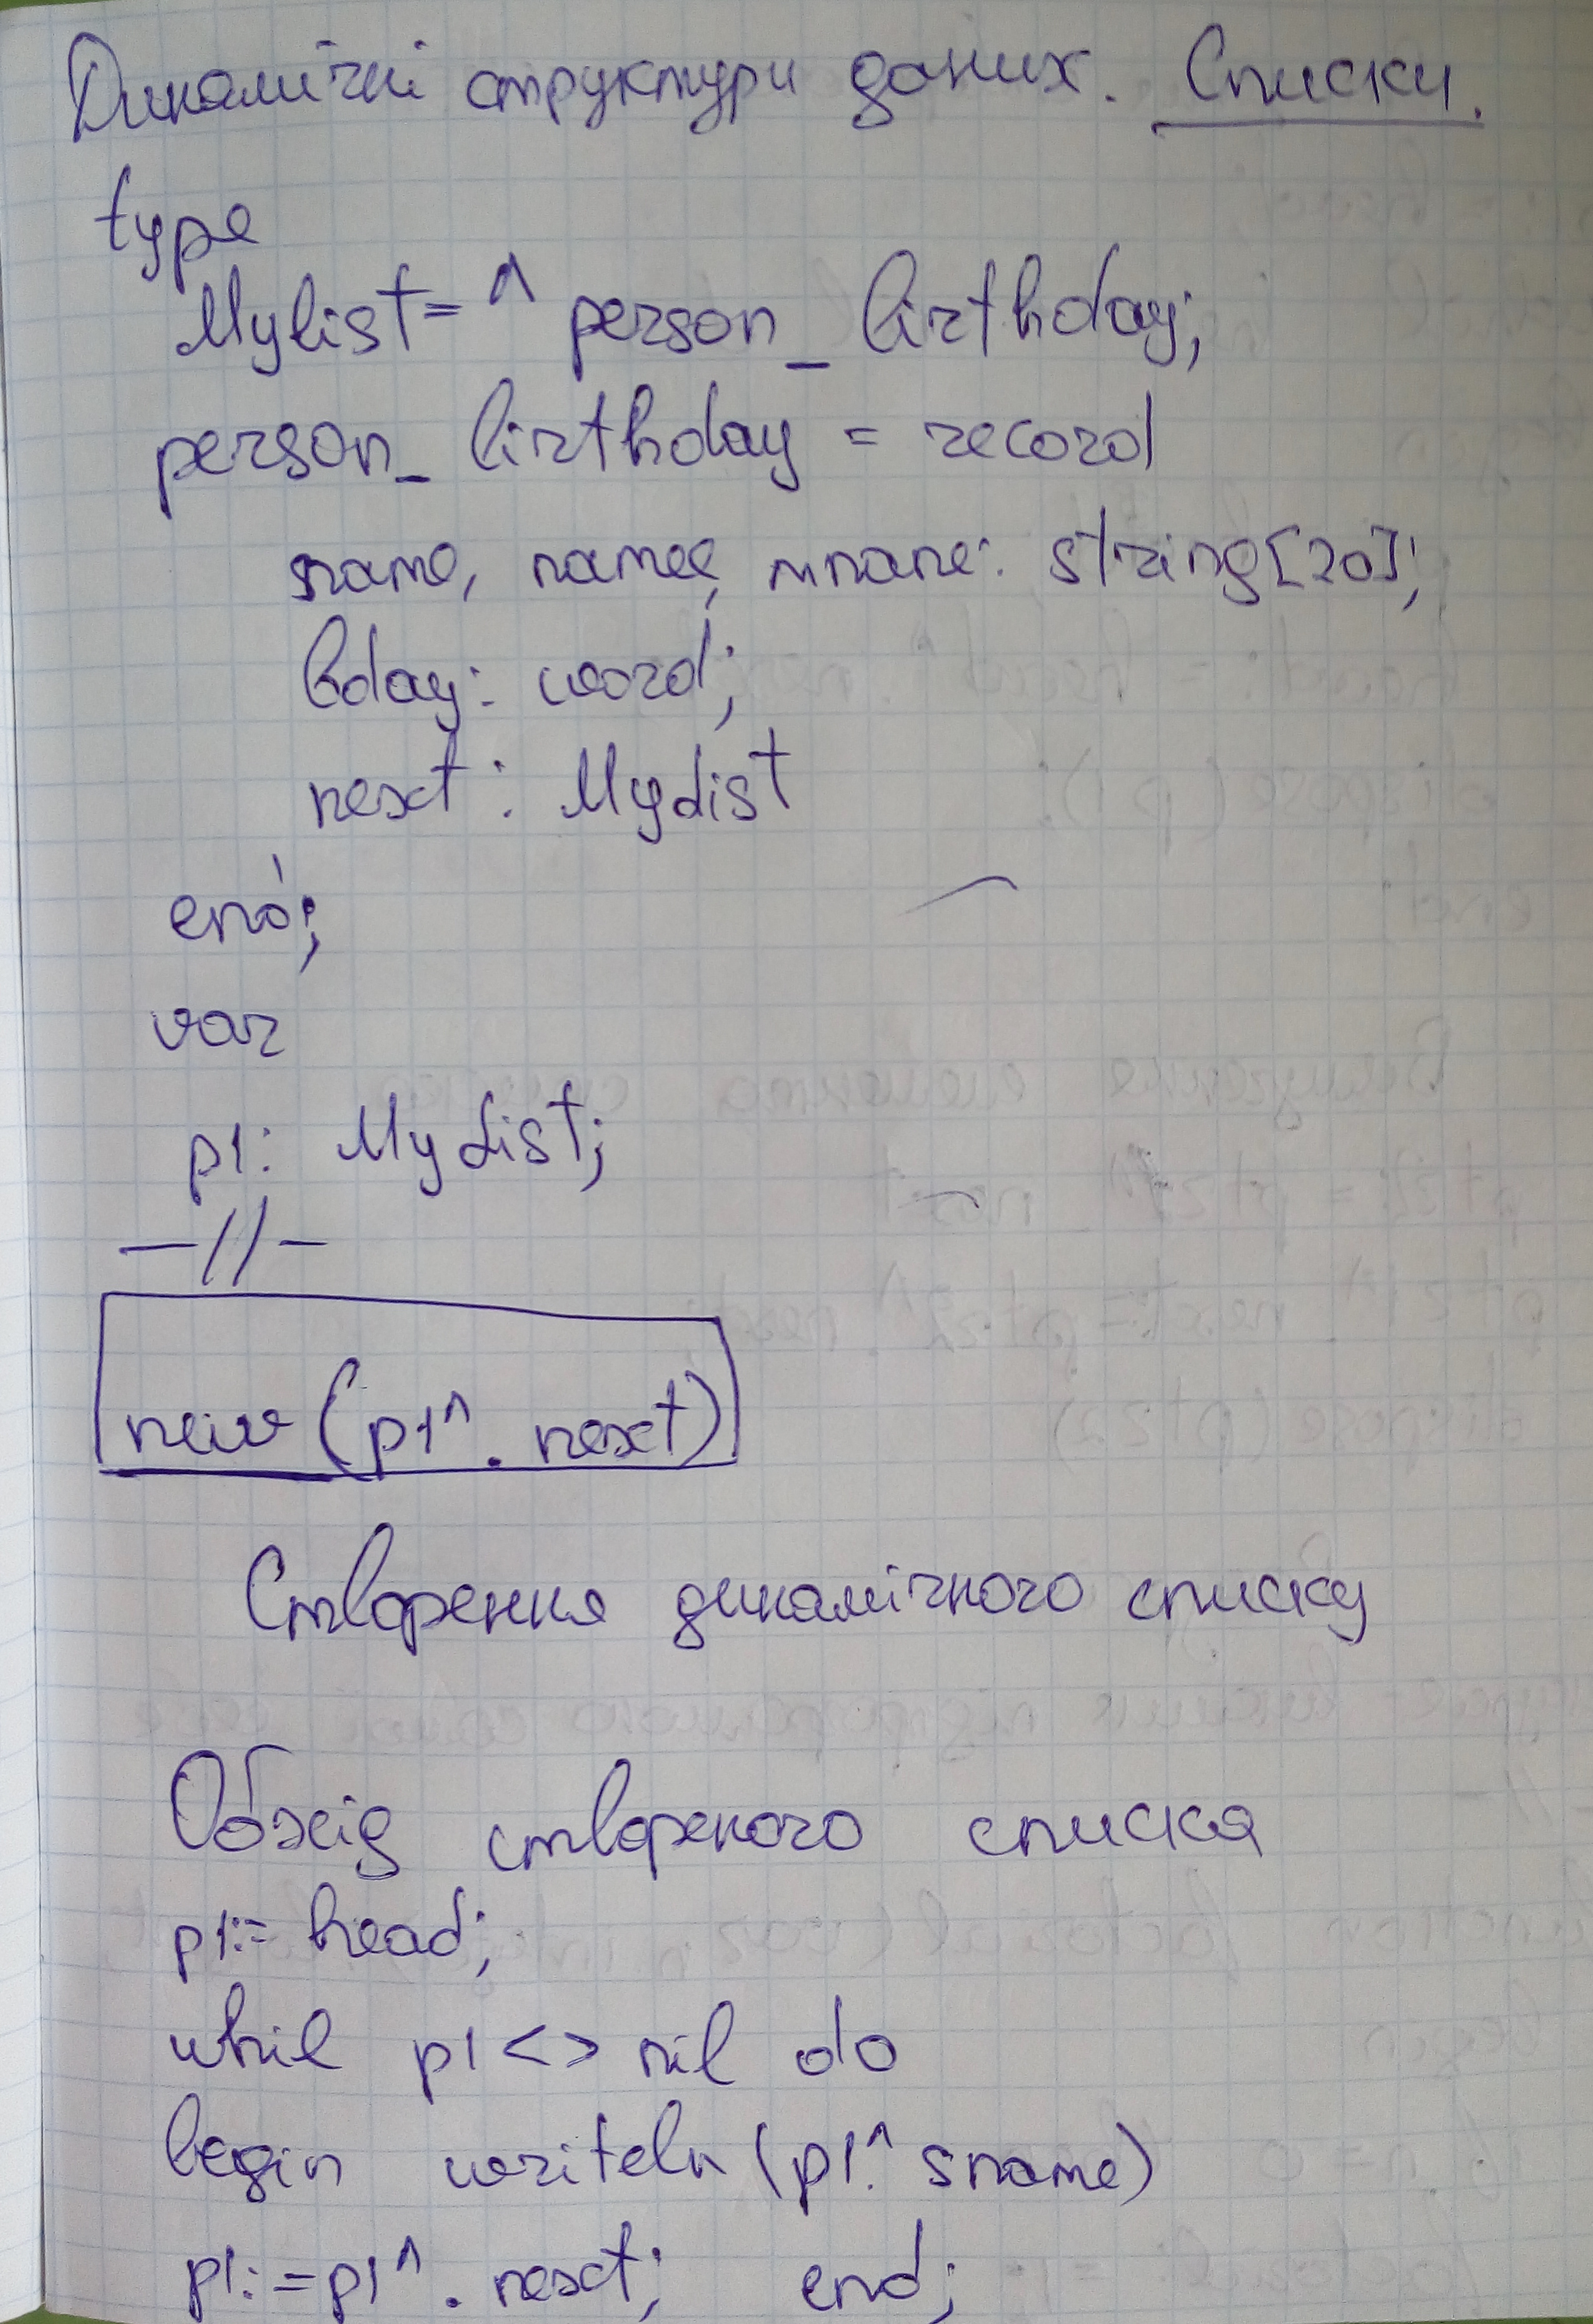 Динамічні структури даних. Списки.
type
Mylist= ^ person_birthday;
person_birthday = record
sname, name, mname: string[20];
bday: word;
next: MyList
end;
var
p1: MyList;
—//—
new(p1^. next)
Створення динамічного списку
Обхід створеного списка
p1:= head;
whil p1 <> nil do
begin writeln(p1^. sname)
p1:=p1^. next; end;